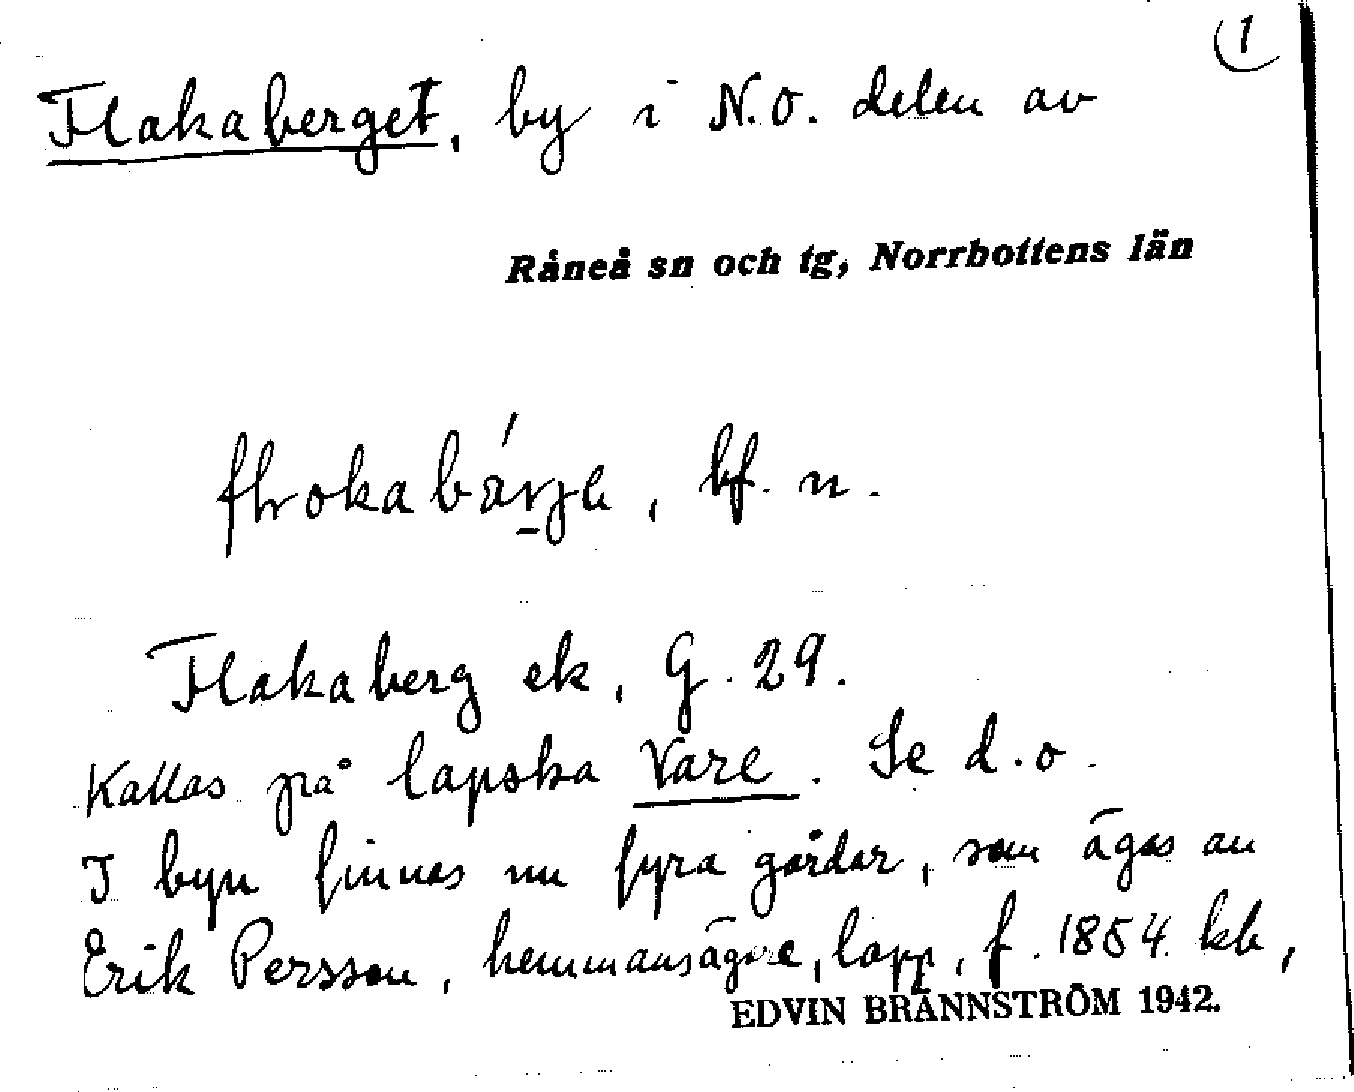 1
Flakaberget, by i N.O. delen av
Råneå sn och tg, Norrbottens län
bf. n.
Flakaberg ek, G. 29.
Kallas på lapska Vare. Se d.o.
I byn finnas nu fyra gårdar, som ägas au
Erik Persson, hemmansägare, lapp, f. 1854 kb,
EDVIN BRÄNNSTRÖM 1942.